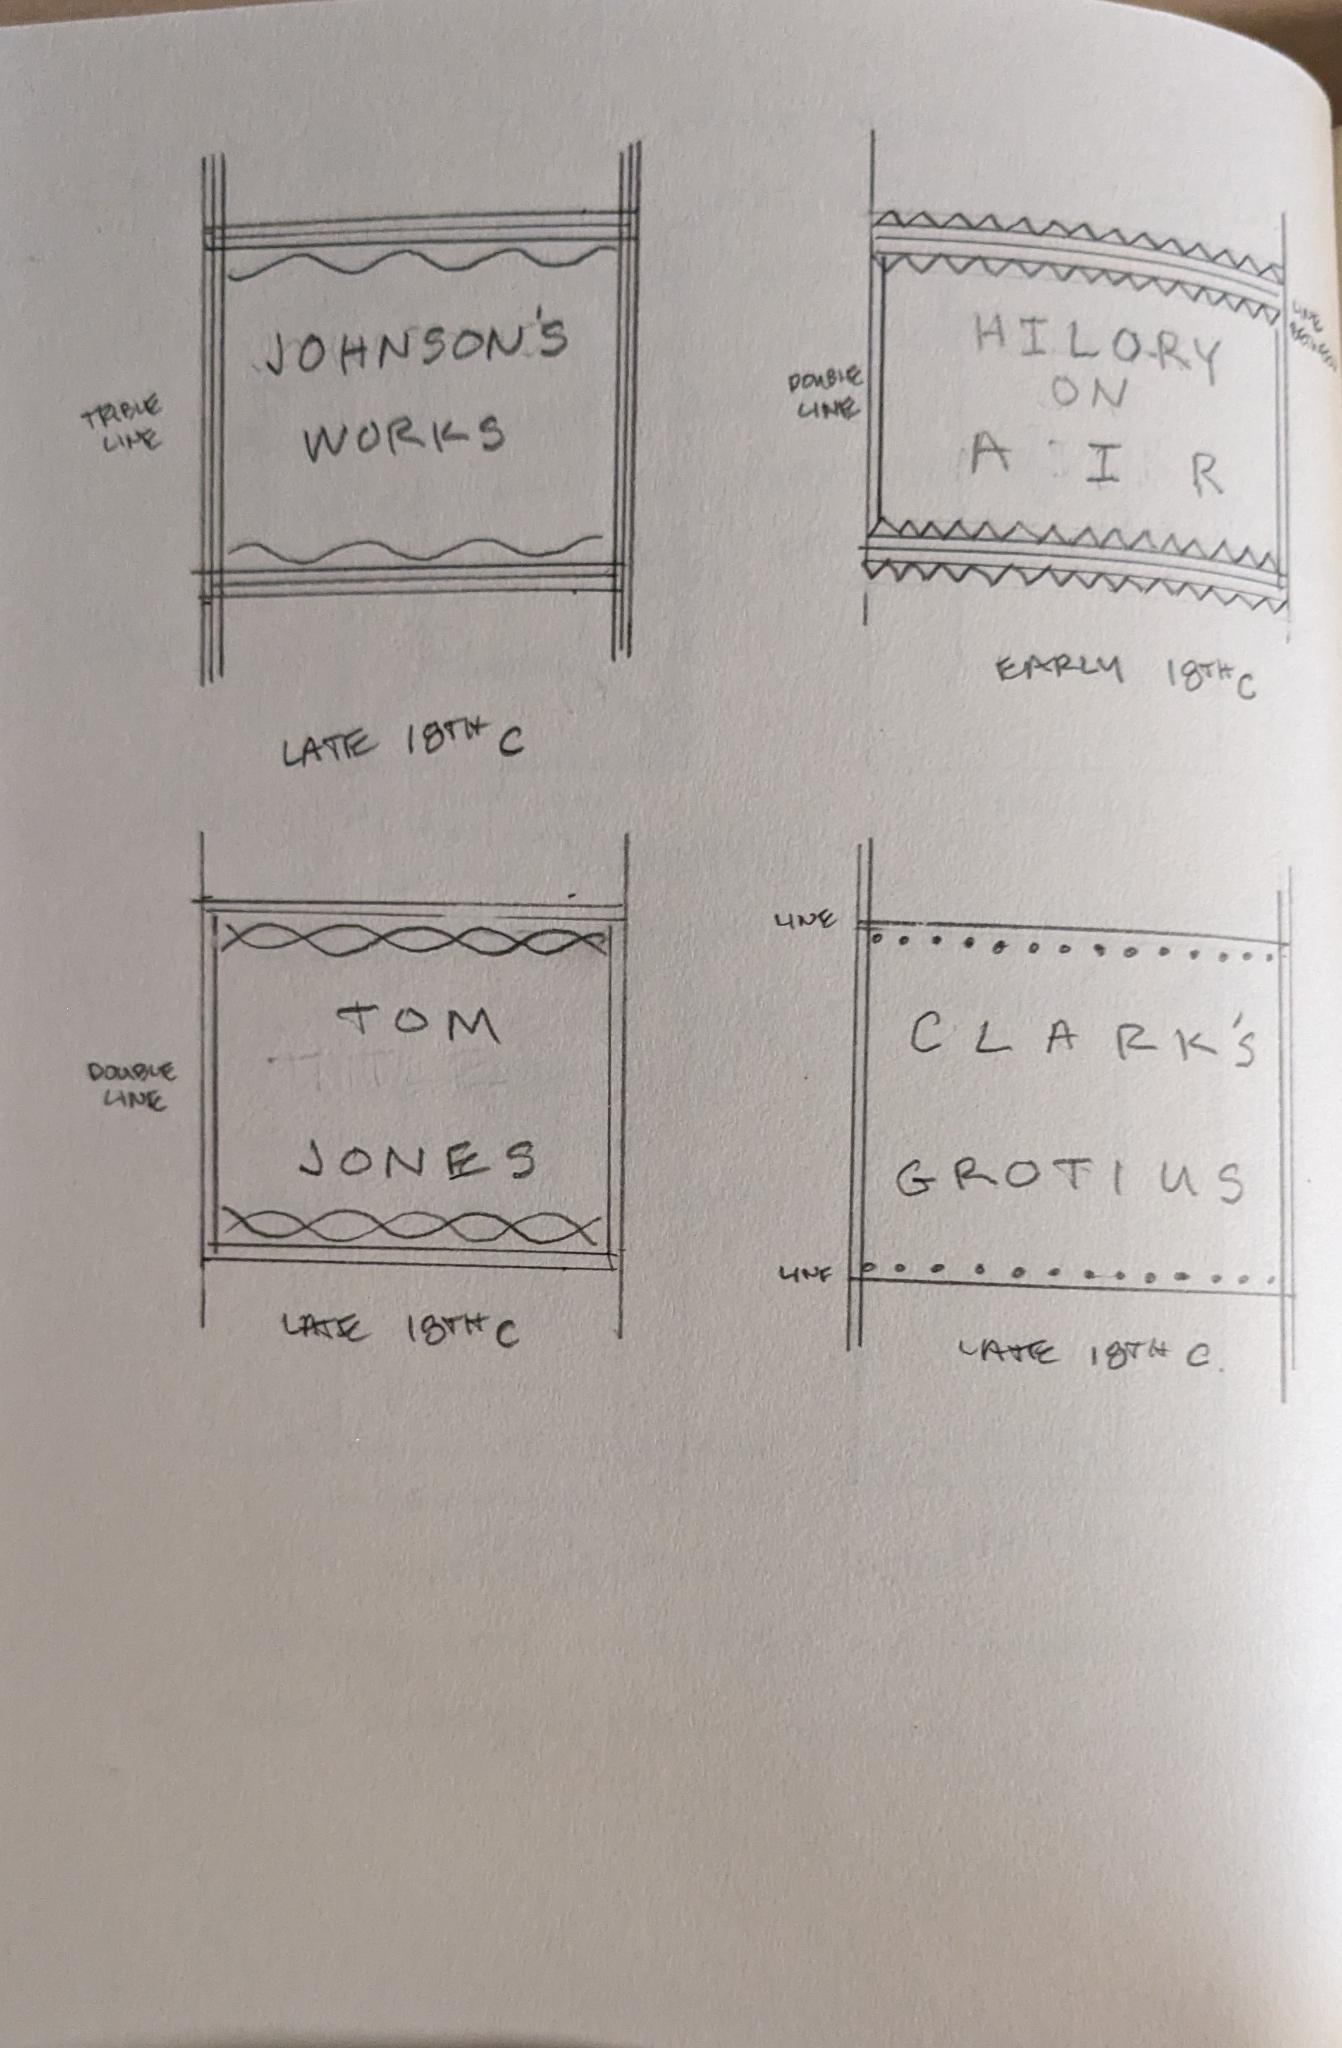 JOHNSON'S
WORKS
TRIBLE
LINE
LATE 18TH C
HILORY
ON
A I R
DOUBLE
LINE
LINE
BETWEEN
EARLY 18TH C
TOM
JONES
DOUBLE
LINE
LATE 18TH C
LINE
CLARK'S
GROTIUS
LINE
LATE 18TH C.